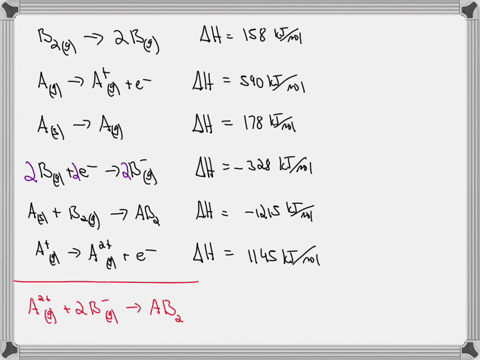 B₂(g) → 2B(g) ΔH = 158 kJ/mol
A(g) → A⁺(g) + e⁻ ΔH = 590 kJ/mol
A(s) → A(g) ΔH = 178 kJ/mol
2B(g) + 2e⁻ → 2B⁻(g) ΔH = -328 kJ/mol
A(s) + B₂(g) → AB₂ ΔH = -1215 kJ/mol
A⁺(g) → A²⁺(g) + e⁻ ΔH = 1145 kJ/mol
A²⁺(g) + 2B⁻(g) → AB₂